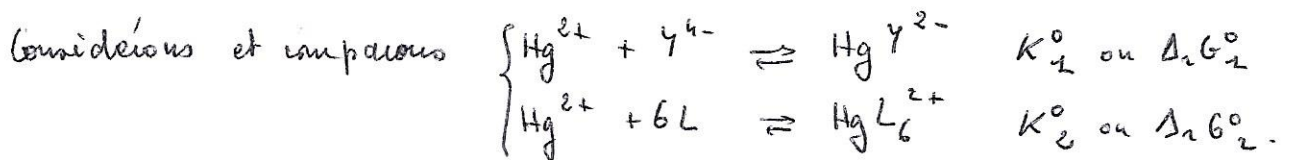 Considérons et comparons { Hg²⁺ + Y⁴⁻ ⇌ HgY²⁻ K°₁ ou Δ_rG°₁
Hg²⁺ + 6L ⇌ HgL₆²⁺ K°₂ ou Δ_rG°₂.